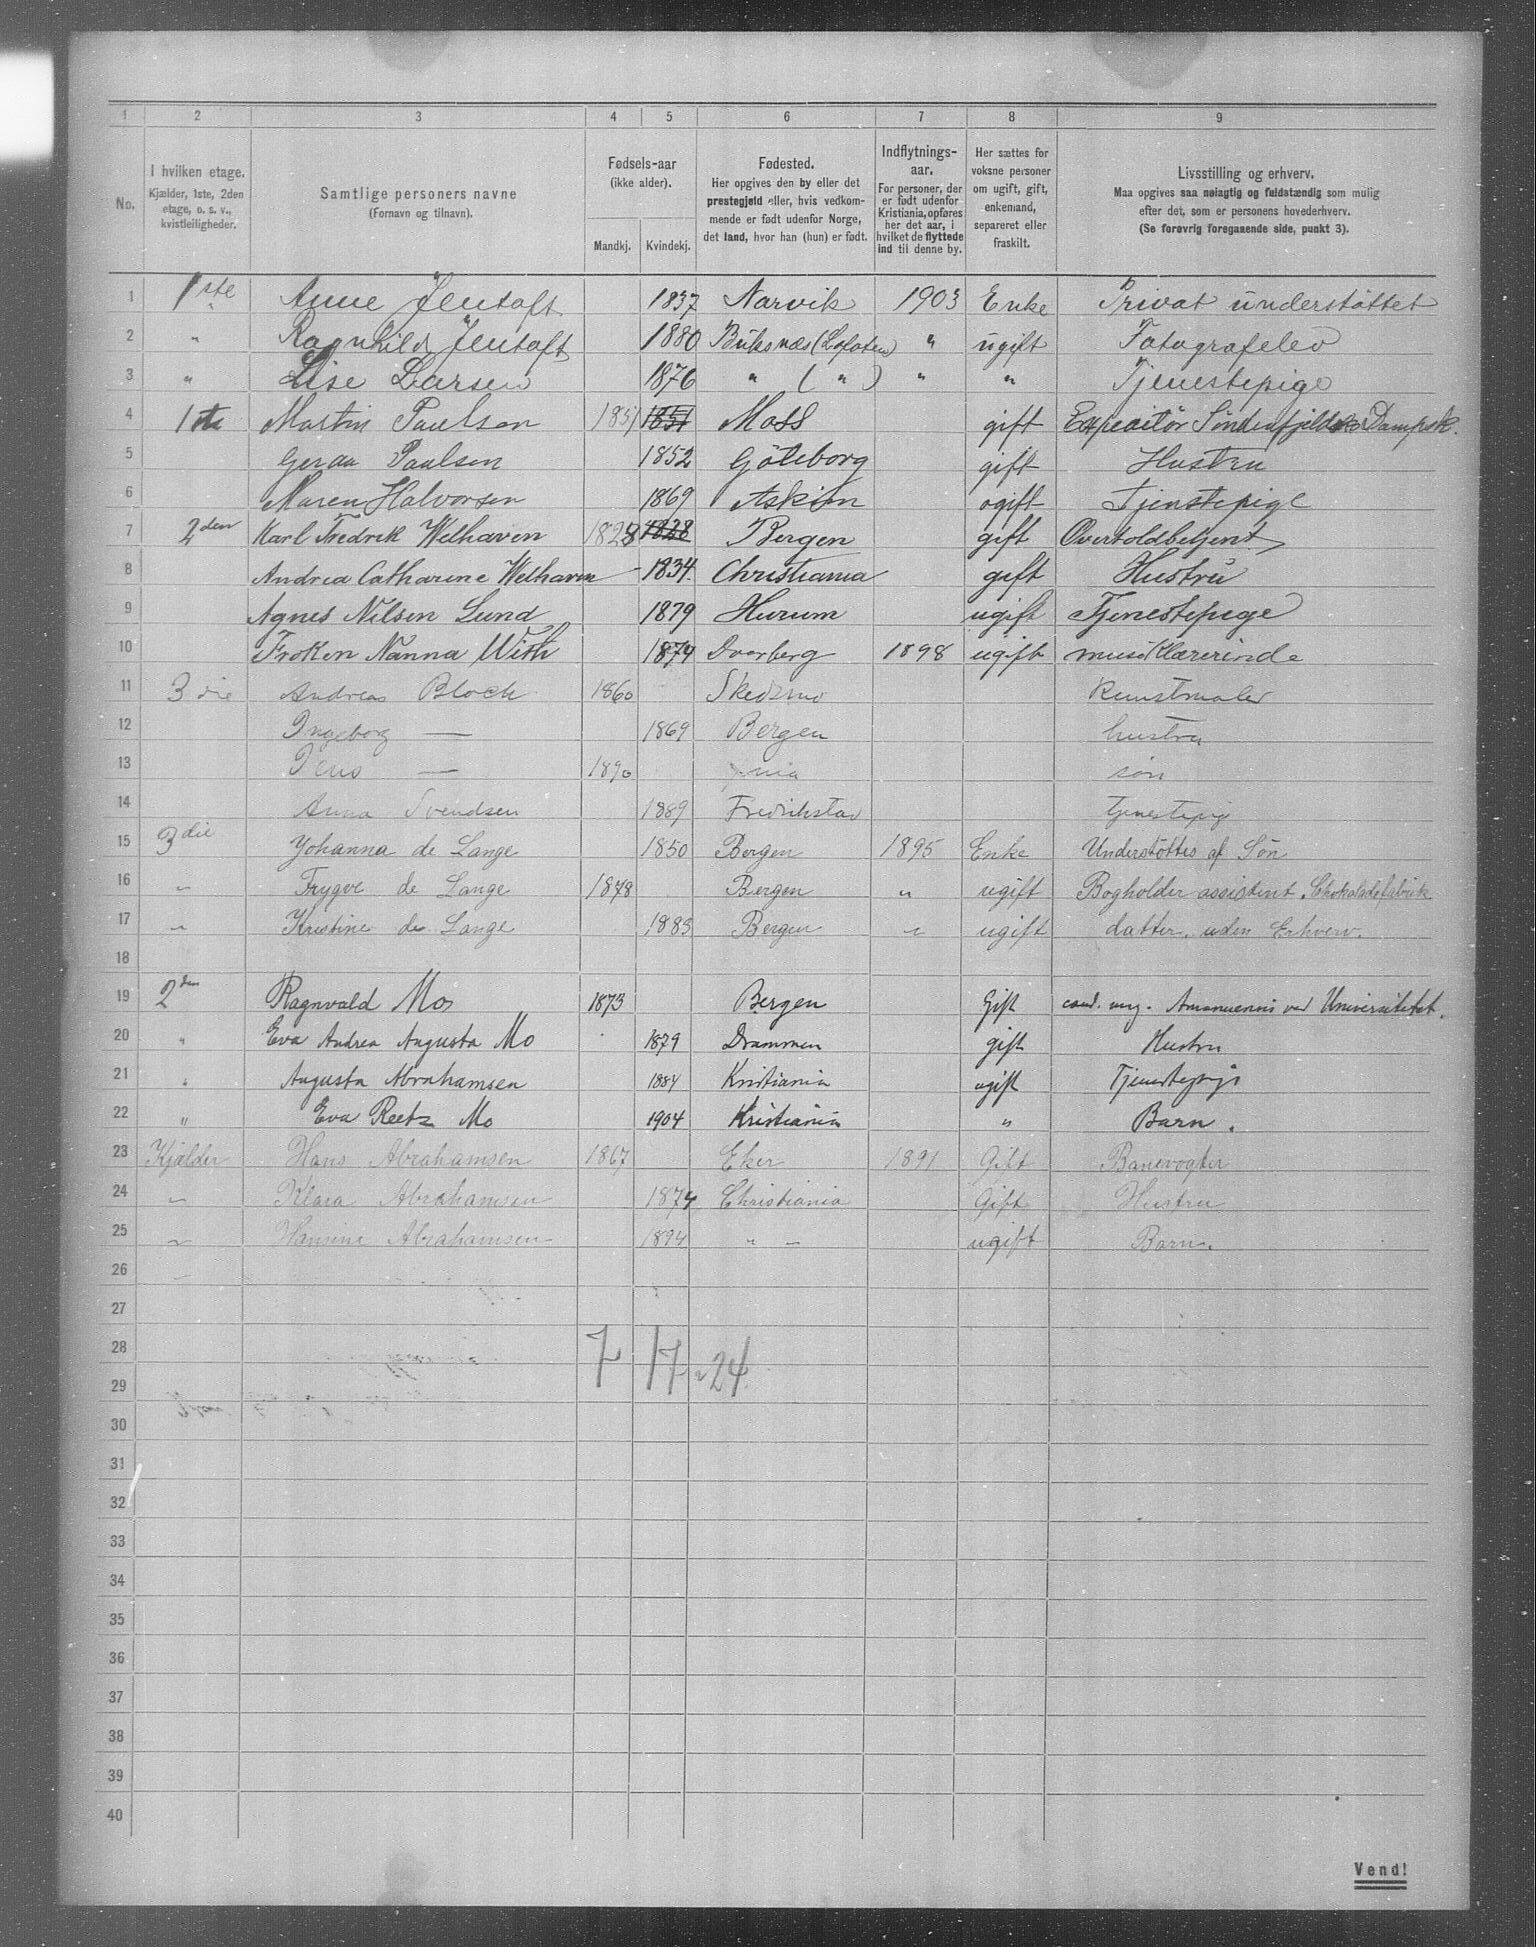 1 2 3 4 5 6 7 8 9
No.
I hvilken etage.
Kjælder, 1ste, 2den
etage, o. s. v.,
kvistleiligheder.
Samtlige personers navne
(Fornavn og tilnavn).
Fødsels-aar
(ikke alder).
Mandkj. Kvindekj.
Fødested.
Her opgives den by eller det
prestegjeld eller, hvis vedkom-
mende er født udenfor Norge,
det land, hvor han (hun) er født.
Indflytnings-
aar.
For personer, der
er født udenfor
Kristiania, opføres
her det aar, i
hvilket de flyttede
ind til denne by.
Her sættes for
voksne personer
om ugift, gift,
enkemand,
separeret eller
fraskilt.
Livsstilling og erhverv.
Maa opgives saa nøiagtig og fuldstændig som mulig
efter det, som er personens hovederhverv.
(Se forøvrig foregaaende side, punkt 3).
1 1ste Anne Jentoft 1837 Narvik 1903 Enke Privat understøttet
2 " Ragnhild Jentoft 1880 Buksnæs (Lofoten) " ugift Fotografelev
3 " Lise Larsen 1876 " ( " ) " " Tjenestepige
4 1ste Martin Paulsen 1851 1851 Moss gift Expeditör Söndenfjeldske Dampsk.
5 Gerda Paulsen 1852 Göteborg gift Hustru
6 Maren Halvorsen 1869 Askim ugift Tjenstepige
7 2den Karl Fredrik Welhaven 1828 1828 Bergen gift Overtoldbetjent
8 Andrea Catharine Welhaven 1834. Christiania gift Hustru
9 Agnes Nilsen Lund 1879 Hurum ugift Tjenestepege
10 Frøken Nanna With 1874 Dverberg 1898 ugift musiklærerinde
11 3die Andreas Bloch 1860 Skedsmo Kunstmaler
12 Ingeborg — 1869 Bergen hustru
13 Jens — 1890 søn
14 Anna Svendsen 1889 Fredrikstad tjenestepig
15 3die Johanna de Lange 1850 Bergen 1895 Enke Understöttes af Sön
16 " Trygve de Lange 1878 Bergen " ugift Bogholder assistent. Chokoladefabrik
17 " Kristine de Lange 1883 Bergen " ugift datter, uden Erhverv.
18
19 2den Ragnvald Mo 1873 Bergen Gift cand. mag. Amanuensis ved Universitetet.
20 " Eva Andrea Augusta Mo 1879 Drammen gift Hustru
21 " Augusta Abrahamsen 1884 Kristiania ugift Tjenestepige
22 " Eva Reetz Mo 1904 Kristiania " Barn.
23 Kjælder Hans Abrahamsen 1867 Eker 1891 Gift Banevogter
24 " Klara Abrahamsen 1874 Christiania Gift Hustru
25 " Hansine Abrahamsen 1894 " " ugift Barn.
26
27
28 7 17 = 24.
29
30
31
32
33
34
35
36
37
38
39
40
Vend!